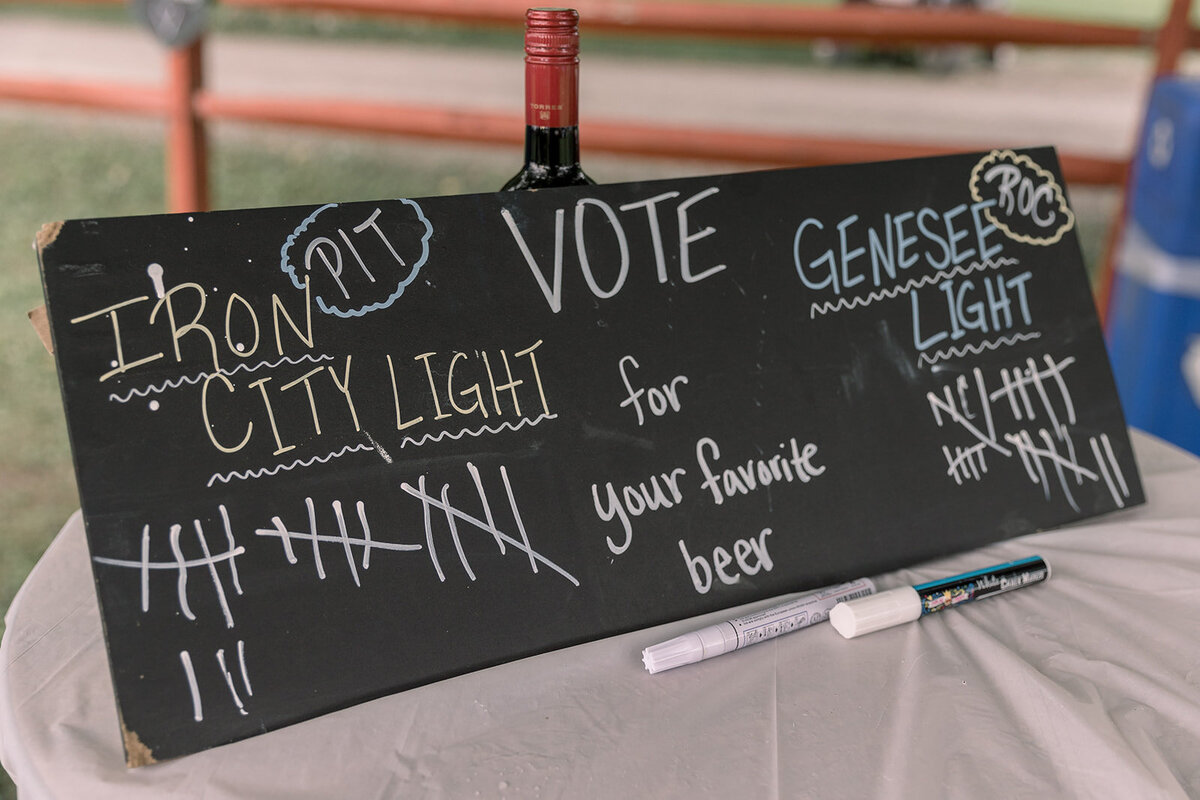 TORRES
VOTE
for
your favorite
beer
PIT
IRON
CITY LIGHT
ROC
GENESEE
LIGHT
8